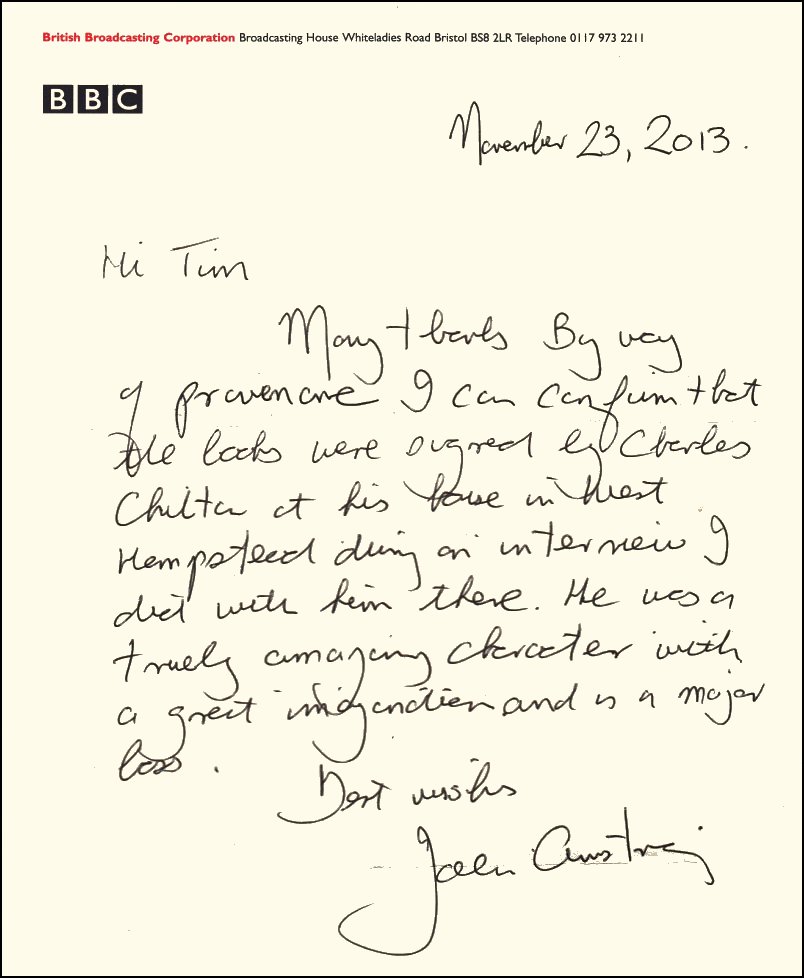 British Broadcasting Corporation Broadcasting House Whiteladies Road Bristol BS8 2LR Telephone 0117 973 2211
BBC
November 23, 2013.
Hi Tim
Many thanks By way
of provenance I can confirm that
the books were signed by Charles
Chilton at his house in West
Hempstead during an interview I
did with him there. He was a
truely amazing character with
a great imagination and is a major
loss.
Best wishes
John